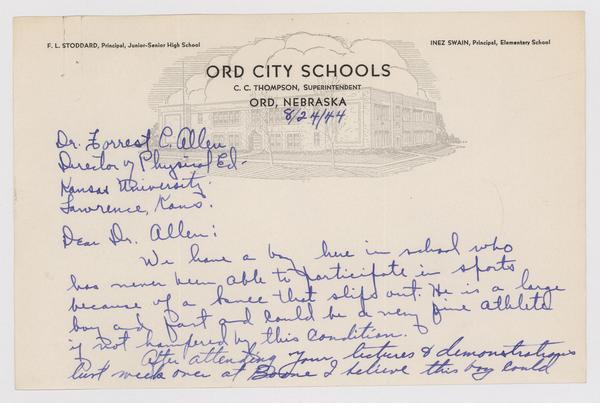 F. L. STODDARD, Principal, Junior-Senior High School
INEZ SWAIN, Principal, Elementary School
ORD CITY SCHOOLS
C. C. THOMPSON, SUPERINTENDENT
ORD, NEBRASKA
8/24/44
Dr. Forrest C. Allen
Director of Physical Ed-
Kansas University.
Lawrence, Kans.
Dear Dr. Allen:
We have a boy here in school who
has never been able to participate in sports
because of a knee that slips out. He is a large
boy and fast and could be a very fine athlete
if not hampered by this condition.
After attending your lectures & demonstrations
last week over at Boone I believe this boy could